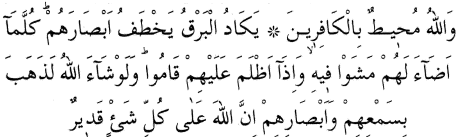 وَاللّٰهُ مُحٖيطٌ بِالْكَافِرٖينَ ❊ يَكَادُ الْبَرْقُ يَخْطَفُ اَبْصَارَهُمْ كُلَّمَٓا
اَضَٓاءَ لَهُمْ مَشَوْا فٖيهِ وَاِذَٓا اَظْلَمَ عَلَيْهِمْ قَامُوا وَلَوْشَٓاءَ اللّٰهُ لَذَهَبَ
بِسَمْعِهِمْ وَاَبْصَارِهِمْ اِنَّ اللّٰهَ عَلٰى كُلِّ شَىْءٍ قَدٖيرٌ